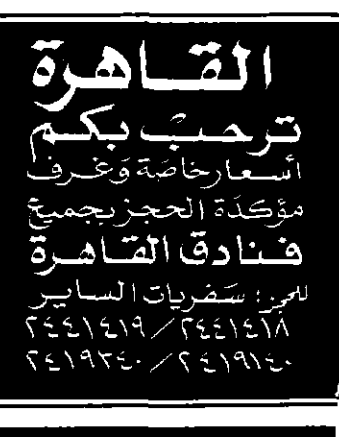 القاهرة
ترحبّ بكم
أسعار خاصَة وَغرف
مؤكدَة الحجز بجميع
فنادق القاهرة
للحجز: سَفريات الساير
٢٤٤١٤١٨ / ٢٤٤١٤١٩
٢٤١٩١٤٠ / ٢٤١٩٣٤٠